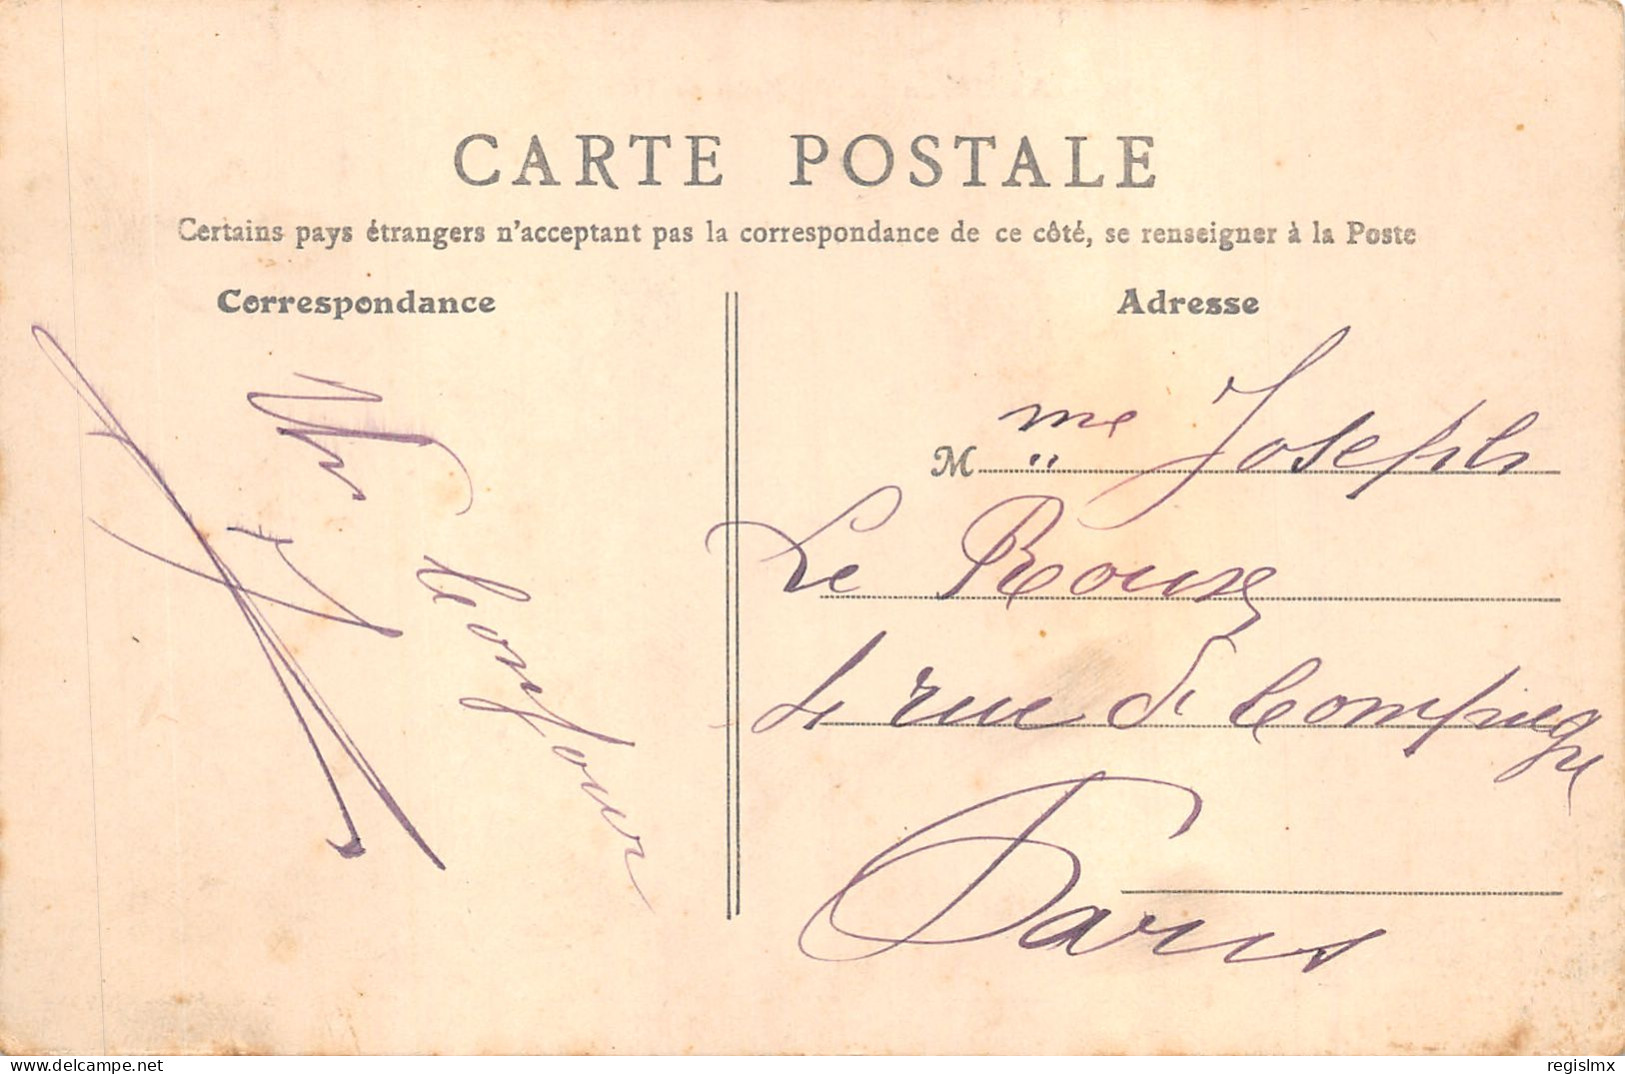 CARTE POSTALE
Certains pays étrangers n'acceptant pas la correspondance de ce côté, se renseigner à la Poste
Correspondance
Adresse
Mme Joseph
Le Roux
4 rue de Compiègne
Paris
delcampe.net
regislmx